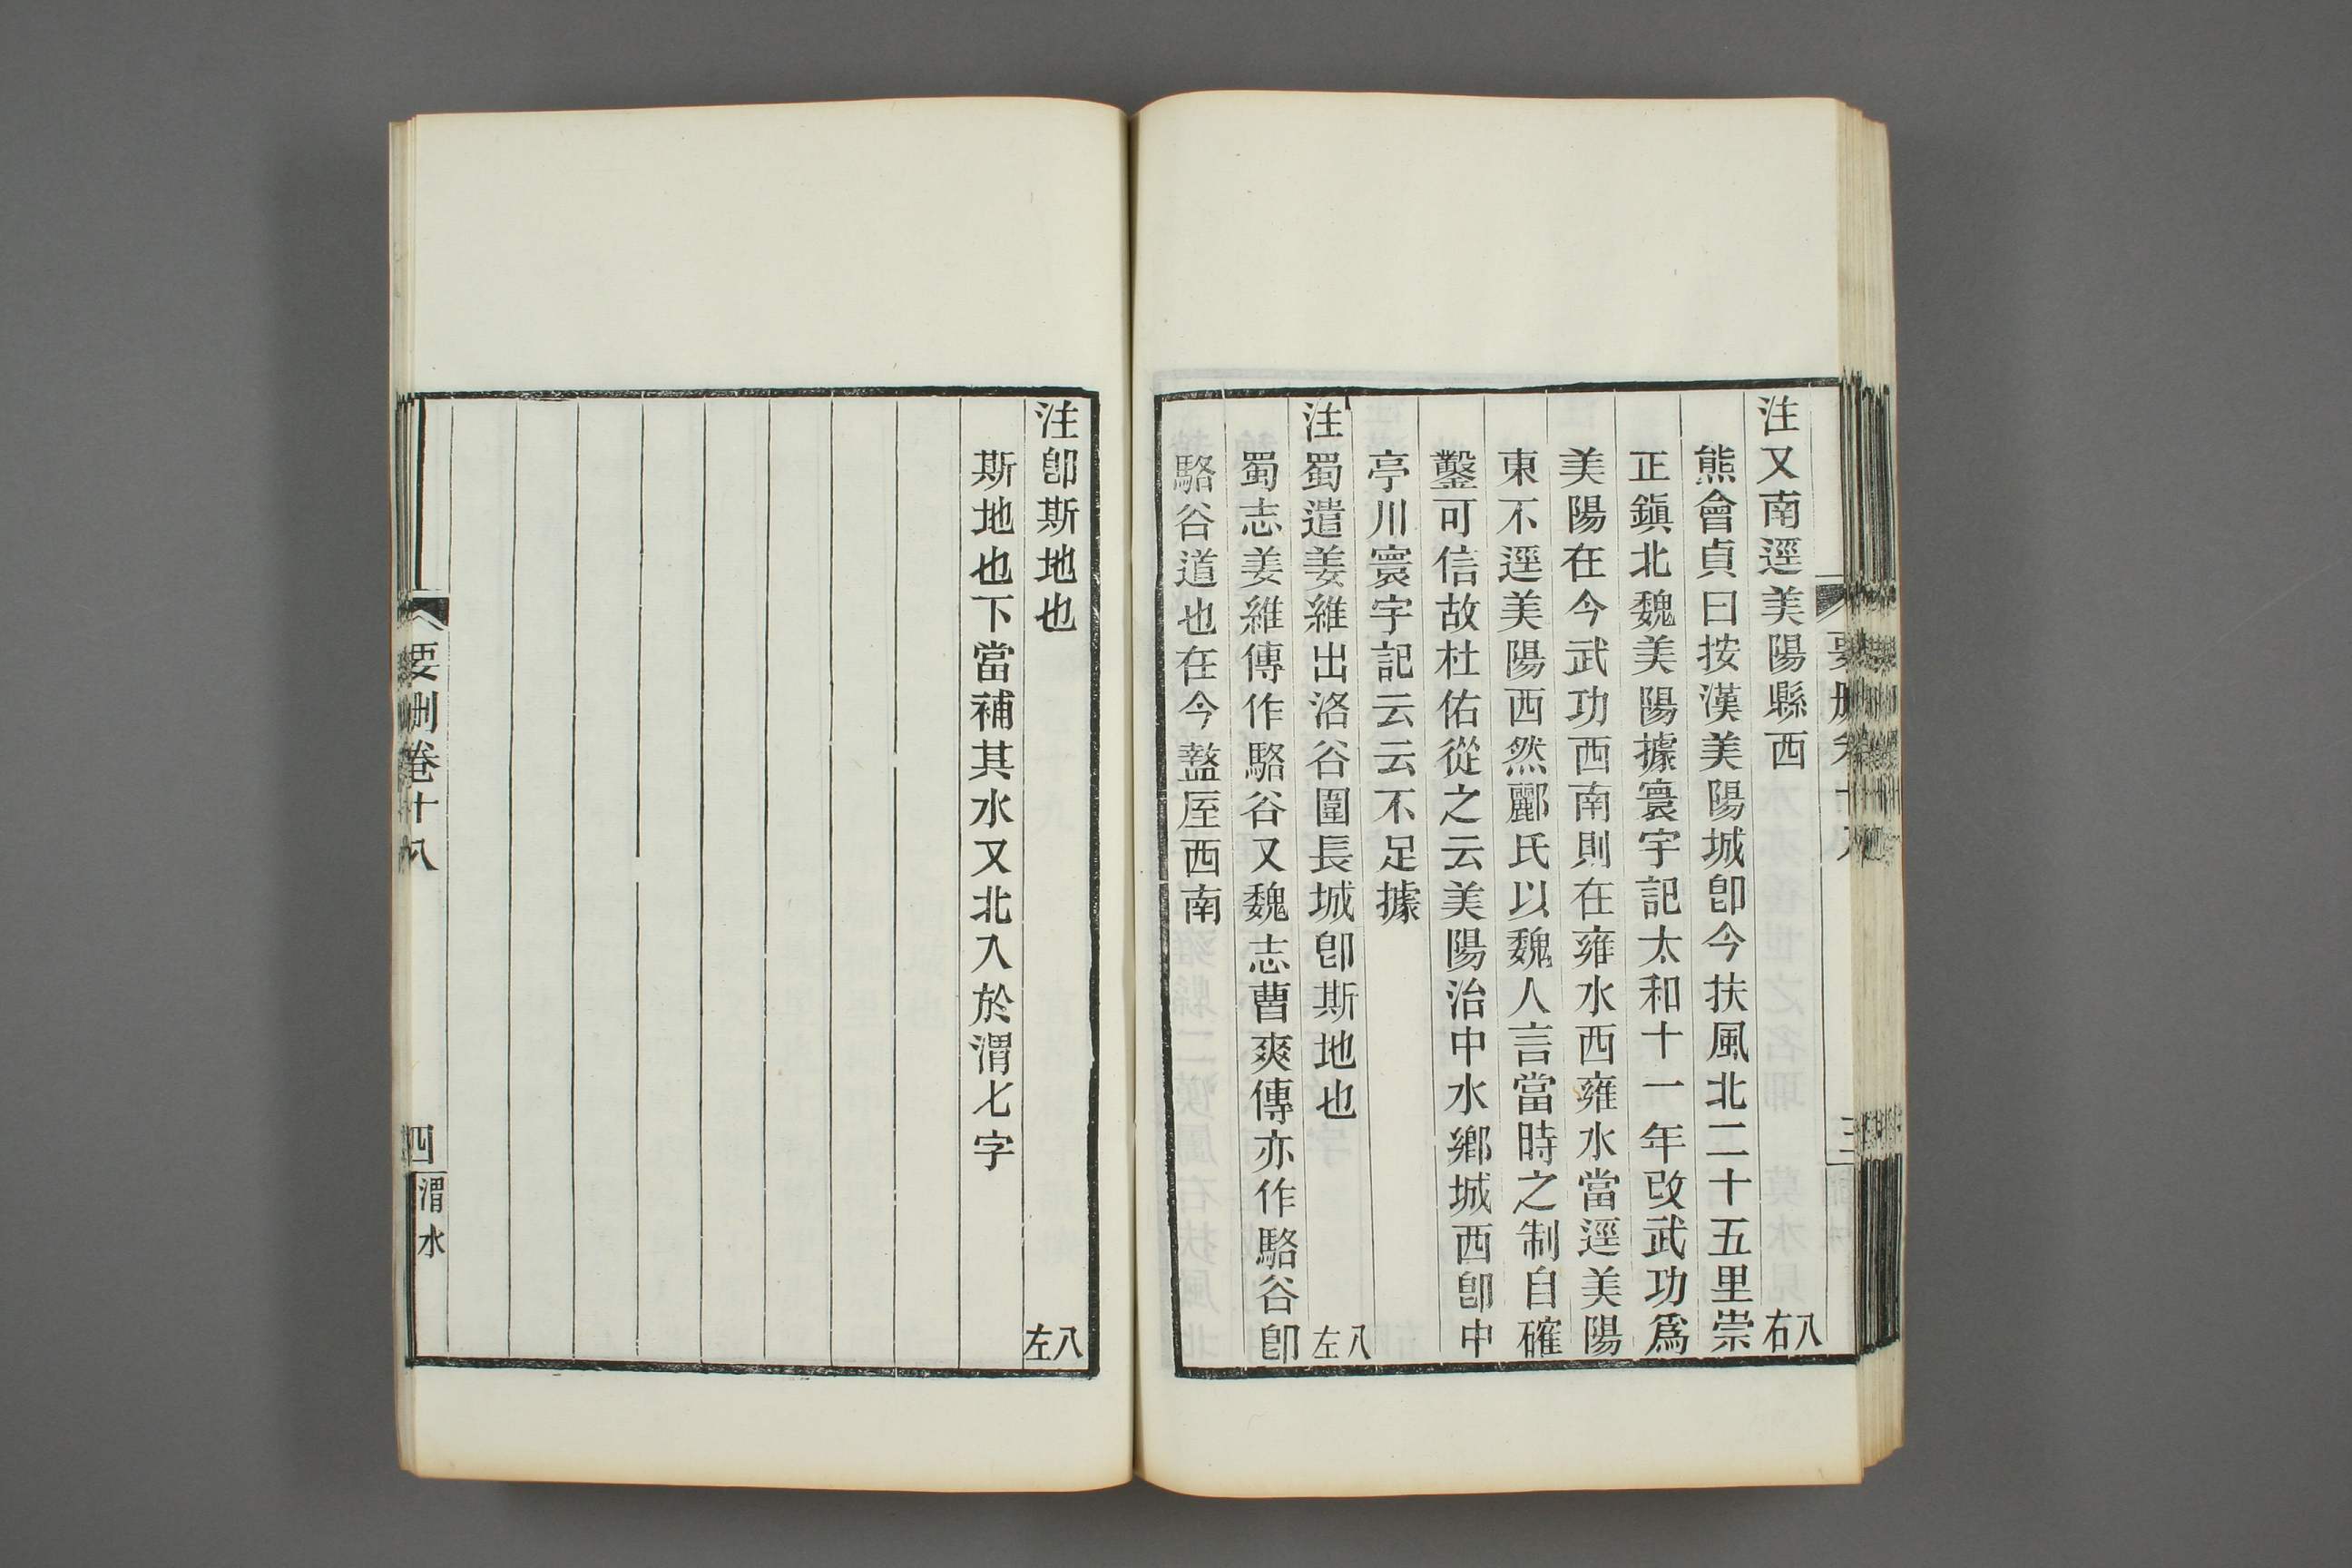 注又南逕美陽縣西 八右
熊會貞曰按漢美陽城卽今扶風北二十五里崇
正鎭北魏美陽據寰宇記太和十一年改武功爲
美陽在今武功西南則在雍水西雍水當逕美陽
東不逕美陽西然酈氏以魏人言當時之制自確
鑿可信故杜佑從之云美陽治中水鄕城西卽中
亭川寰宇記云云不足據
注蜀遣姜維出洛谷圍長城卽斯地也 八左
蜀志姜維傳作駱谷又魏志曹爽傳亦作駱谷卽
駱谷道也在今盩厔西南
注卽斯地也 八左
斯地也下當補其水又北入於渭七字
要刪卷十八 四 渭水